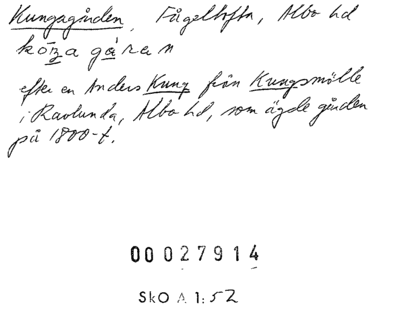 Kungagården, Fågeltofta, Albo hd
köŋa gáran
efter en Anders Kung från Kungsmölle
i Ravlunda, Albo hd, som ägde gården
på 1800-t.
00027914
SkO A 1:52